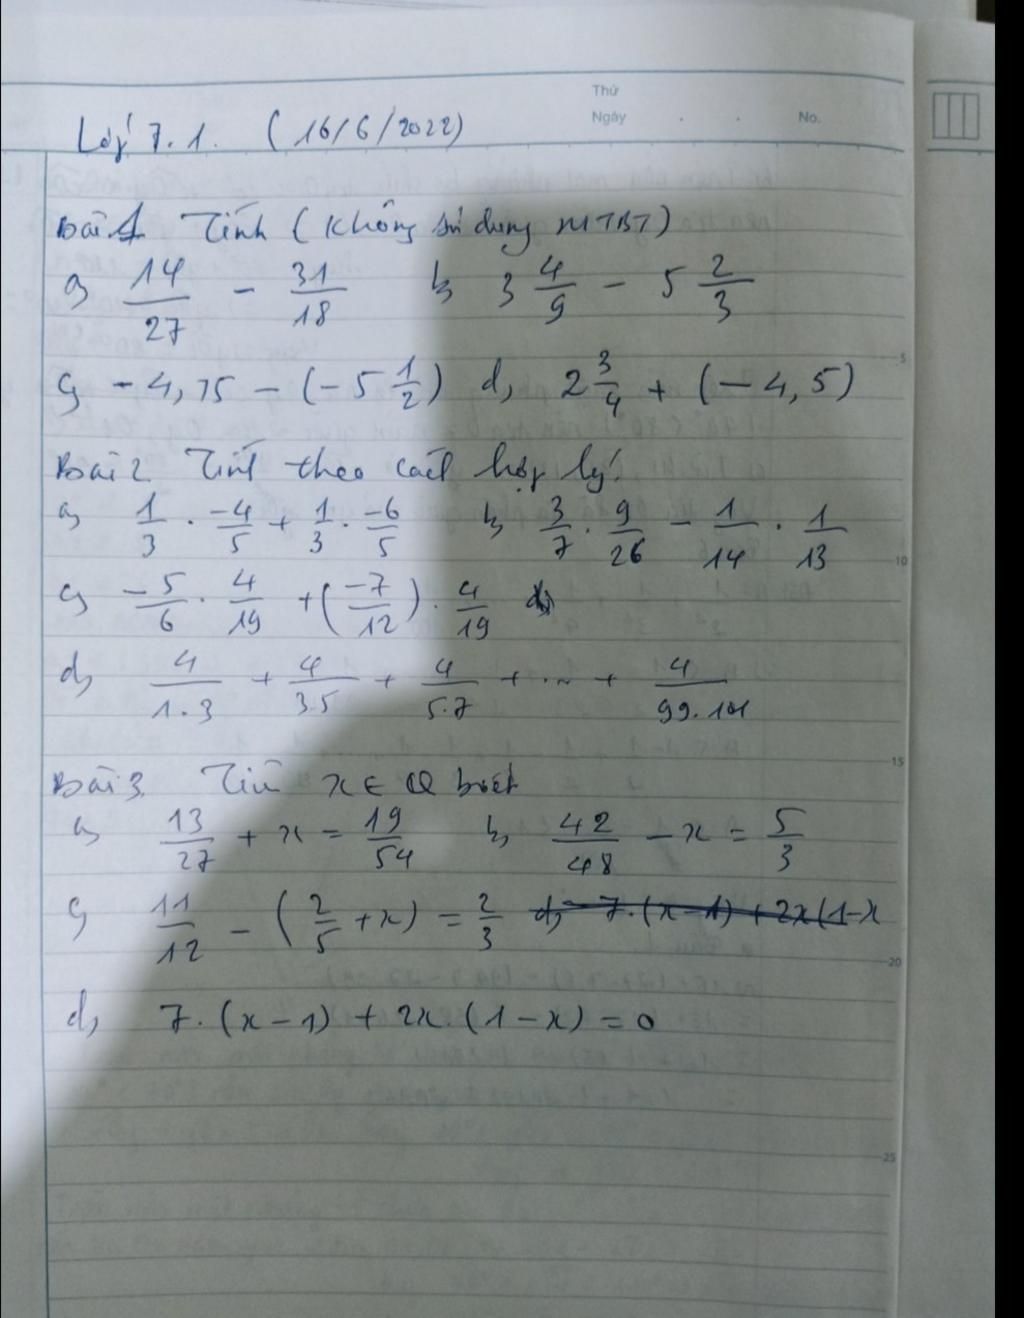 Thứ
Ngày . . No.
Lớp 7.1. (16/6/2022)
Bài 1 Tính (Không sử dụng MTBT)
a, 14/27 - 31/18 b, 3 4/9 - 5 2/3
c, -4,75 - (-5 1/2) d, 2 3/4 + (-4,5)
Bài 2 Tính theo cách hợp lý!
a, 1/3 . -4/5 + 1/3 . -6/5 b, 3/7 . 9/26 - 1/14 . 1/13
c, -5/6 . 4/19 + (-7/12) . 4/19
d, 4/1.3 + 4/3.5 + 4/5.7 + ... + 4/99.101
Bài 3. Tìm x ∈ Q biết
a, 13/27 + x = 19/54 b, 42/48 - x = 5/3
c, 11/12 - (2/5 + x) = 2/3 d, - 7.(x-1) + 2x(1-x
d, 7.(x-1) + 2x.(1-x) = 0
5
10
15
20
25